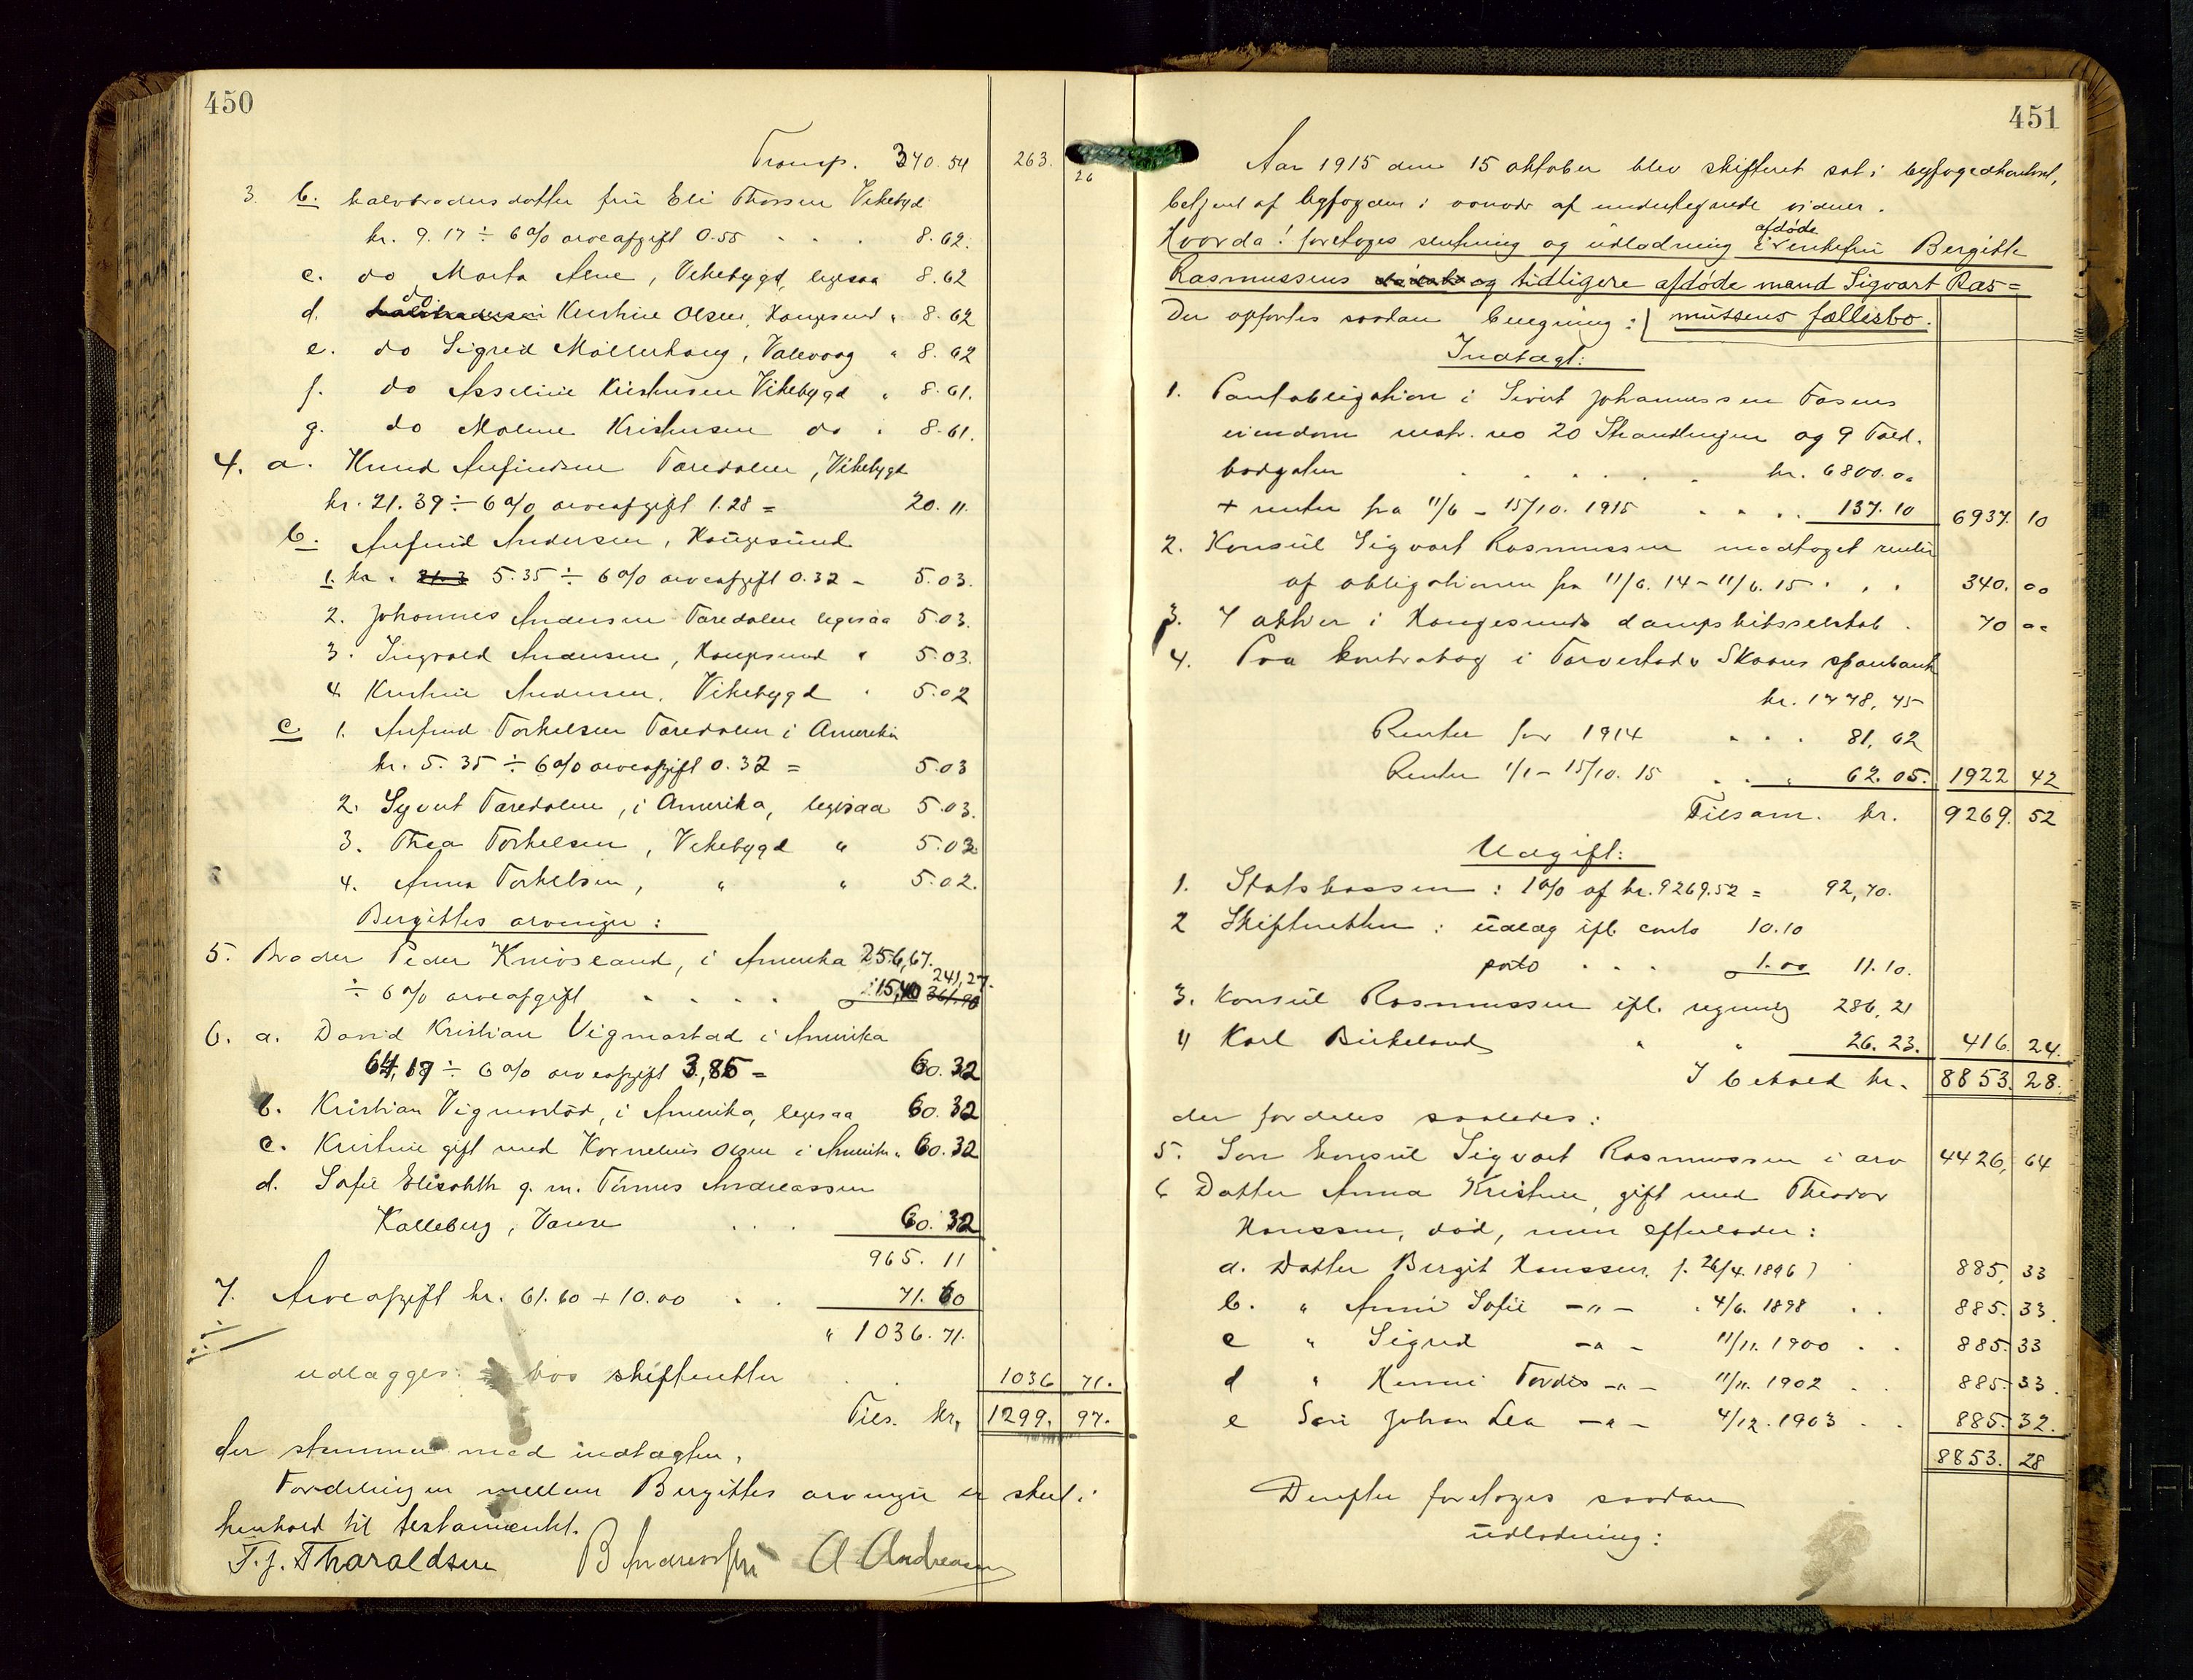 450
Transp. 340.54 263. 26
3. b. halvbroders datter fru Eli Thorsen Vikebygd
kr. 9.17 ÷ 6% arveafgift 0.55 . . . 8.62.
c. do Marta Alne, Vikebygd, ligesaa 8.62
d. do Kristine Olsen, Haugesund " 8.62
e. do Sigrid Møllerhaug, Valevaag " 8.62
f. do Asseline Kristensen Vikebygd " 8.61.
g. do Malene Kristensen do " 8.61.
4. a. Knud Arfindsen Faredalen, Vikebygd
kr. 21.39 ÷ 6% arveafgift 1.28 = 20.11.
b. Anfind Andersen, Haugesund
1. kr. 5.35 ÷ 6% arveafgift 0.32 - 5.03.
2. Johannes Andersen Faredalen ligesaa 5.03.
3. Ingvald Andersen, Haugesund " 5.03.
4 Kristine Andersen, Vikebygd " 5.02
c 1. Anfind Torkelsen Faredalen i Amerika
kr. 5.35 ÷ 6% arveafgift 0.32 = 5.03
2. Syvert Faredalen, i Amerika, ligesaa 5.03.
3. Thea Torkelsen, Vikebygd " 5.03
4. Anna Torkelsen, " " 5.02.
Bergittes arvinger:
5. Broder Peder Kniosland, i Amerika 256,67.
÷ 6% arveafgift . . . . 15,40 241,27.
6. a. David Kristian Vigmostad i Amerika
64,17 ÷ 6% arveafgift 3,85 = 60.32
b. Kristian Vigmostad, i Amerika, ligesaa 60.32
c. Kristine gift med Kornelius Olsen i Amerika " 60.32
d. Sofie Elisabth g. m. Tønnes Andreassen
Kalleberg, Vanse . . . 60.32
965.11
7. Arveafgift kr. 61.60 + 10.00 . . 71.60
" 1036.71.
udlægges hos skifteretten . . 1036 71.
Tils. kr. 1299. 97.
der stemmer med indtægten.
Fordelingen mellem Bergittes arvinger er skeet i
henhold til testamentet.
T. J. Tharaldsen A Andreasen
451
Aar 1915 den 15 oktober blev skifteret sat i byfogedkontoret,
betjent af byfogden i overvær af undertegnede vidner.
Hvorda! foretoges slutning og udlodning i afdøde enkefru Bergitte
Rasmussens og tidligere afdøde mand Sigvart Ras=
Der opførtes saadan beregning: mussens fællisbo.
Indtægt:
1. Pantobligation i Sivert Johannessen Fosens
eiendom matr. no 20 Strandgaten og 9 Told.
bodgaten . . . . . . kr. 6800.00
+ renter fra 11/6 - 15/10. 1915 . . . . 137.10 6937. 10
2. Konsul Sigvart Rasmussen modtaget renter
af obligationen fra 11/6. 14 - 11/6. 15 . . . 340. 00
3. 7 aktier i Haugesunds dampskibsselskab . 70 00
4. Paa kontrabog i Torvestad & Skaares sparebank
kr. 1778,75
Renter for 1914 . . . 81,62
Renter 1/1 - 15/10. 15 . . . 62.05. 1922 42
Tilsam. kr. 9269. 52
Udgift:
1. Statskassen: 1% af kr. 9269.52 = 92,70.
2 Skifteretten: udlæg ifl. conto 10.10
porto . . . 1.00 11.10.
3. Konsul Rasmussen ifl. regning 286,21
4 Karl Birkeland " " 26.23. 416. 24.
I behold kr. 8853. 28.
der fordeles saaledes:
5. Søn konsul Sigvart Rasmussen i arv 4426, 64
6 Datter Anna Kristine, gift med Theodor
Hanssen, død, men efterlader:
a. Datter Bergit Hanssen, f. 26/4. 1896) 885, 33
b. " Anni Sofie - " - 4/6. 1898 . . 885. 33.
c " Sigrid - " - 11/11. 1900 . . 885. 33
d " Henni Tordis - " - 11/11. 1902 . . 885. 33.
e Søn Johan Lea - " - 4/12. 1903 . . 885. 32.
8853. 28
Derefter foretoges saadan
udlodning: